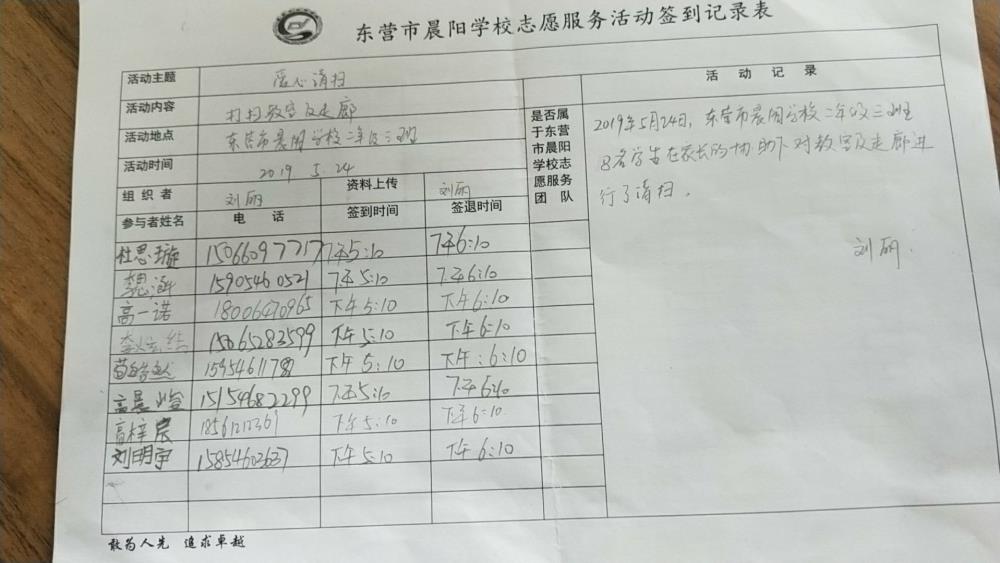 东营市晨阳学校志愿服务活动签到记录表
活动主题 爱心清扫
活动内容 打扫教室及走廊
活动地点 东营市晨阳学校二年级三班
活动时间 2019 5.24
组织者 刘丽 资料上传 刘丽
参与者姓名 电话 签到时间 签退时间
是否属
于东营
市晨阳
学校志
愿服务
团队
杜思璇 15066097717 下午5:10 下午6:10
15905460521 下午5:10 下午6:10
高一诺 18006470965 下午5:10 下午6:10
15065283599 下午5:10 下午6:10
下午5:10 下午:6:10
15154682299 下午5:10 下午6:10
高梓宸 下午5:10 下午6:10
刘明宇 15854603637 下午5:10 下午6:10
活动记录
2019年5月24日,东营市晨阳学校二年级三班
8名学生在家长的协助下对教室及走廊进
行了清扫。
刘丽.
敢为人先 追求卓越